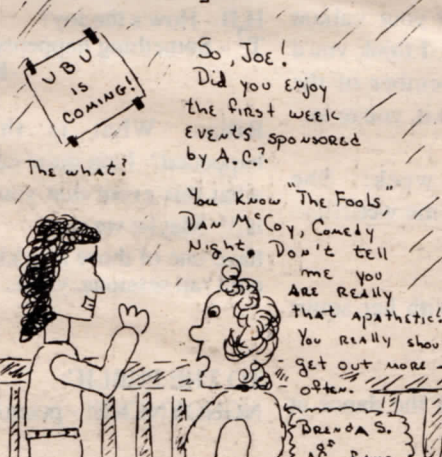 UBU
IS
COMING!
The what?
So, Joe!
Did you enjoy
the first week
events sponsored
by A.C.?
You know "The Fools"
Dan McCoy, Comedy
Night. Don't tell
me you
are really
that apathetic!
You really shou
get out more
often
Brenda S.
of